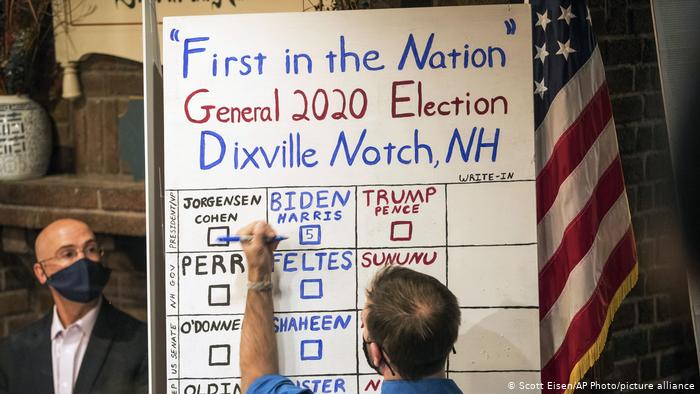 "First in the Nation"
General 2020 Election
Dixville Notch, NH
WRITE-IN
PRESIDENT/VP
JORGENSEN
COHEN
BIDEN
HARRIS
5
TRUMP
PENCE
NH GOV
PERR
FELTES
SUNUNU
US SENATE
O'DONNE
SHAHEEN
© Scott Eisen/AP Photo/picture alliance